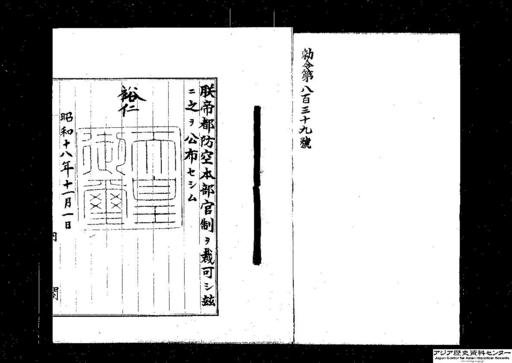 勅令第八百三十九號
朕帝都防空本部官制ヲ裁可シ茲
ニ之ヲ公布セシム
裕仁
天皇御璽
昭和十八年十一月一日
内
閣
アジア歴史資料センター
Japan Center for Asian Historical Records